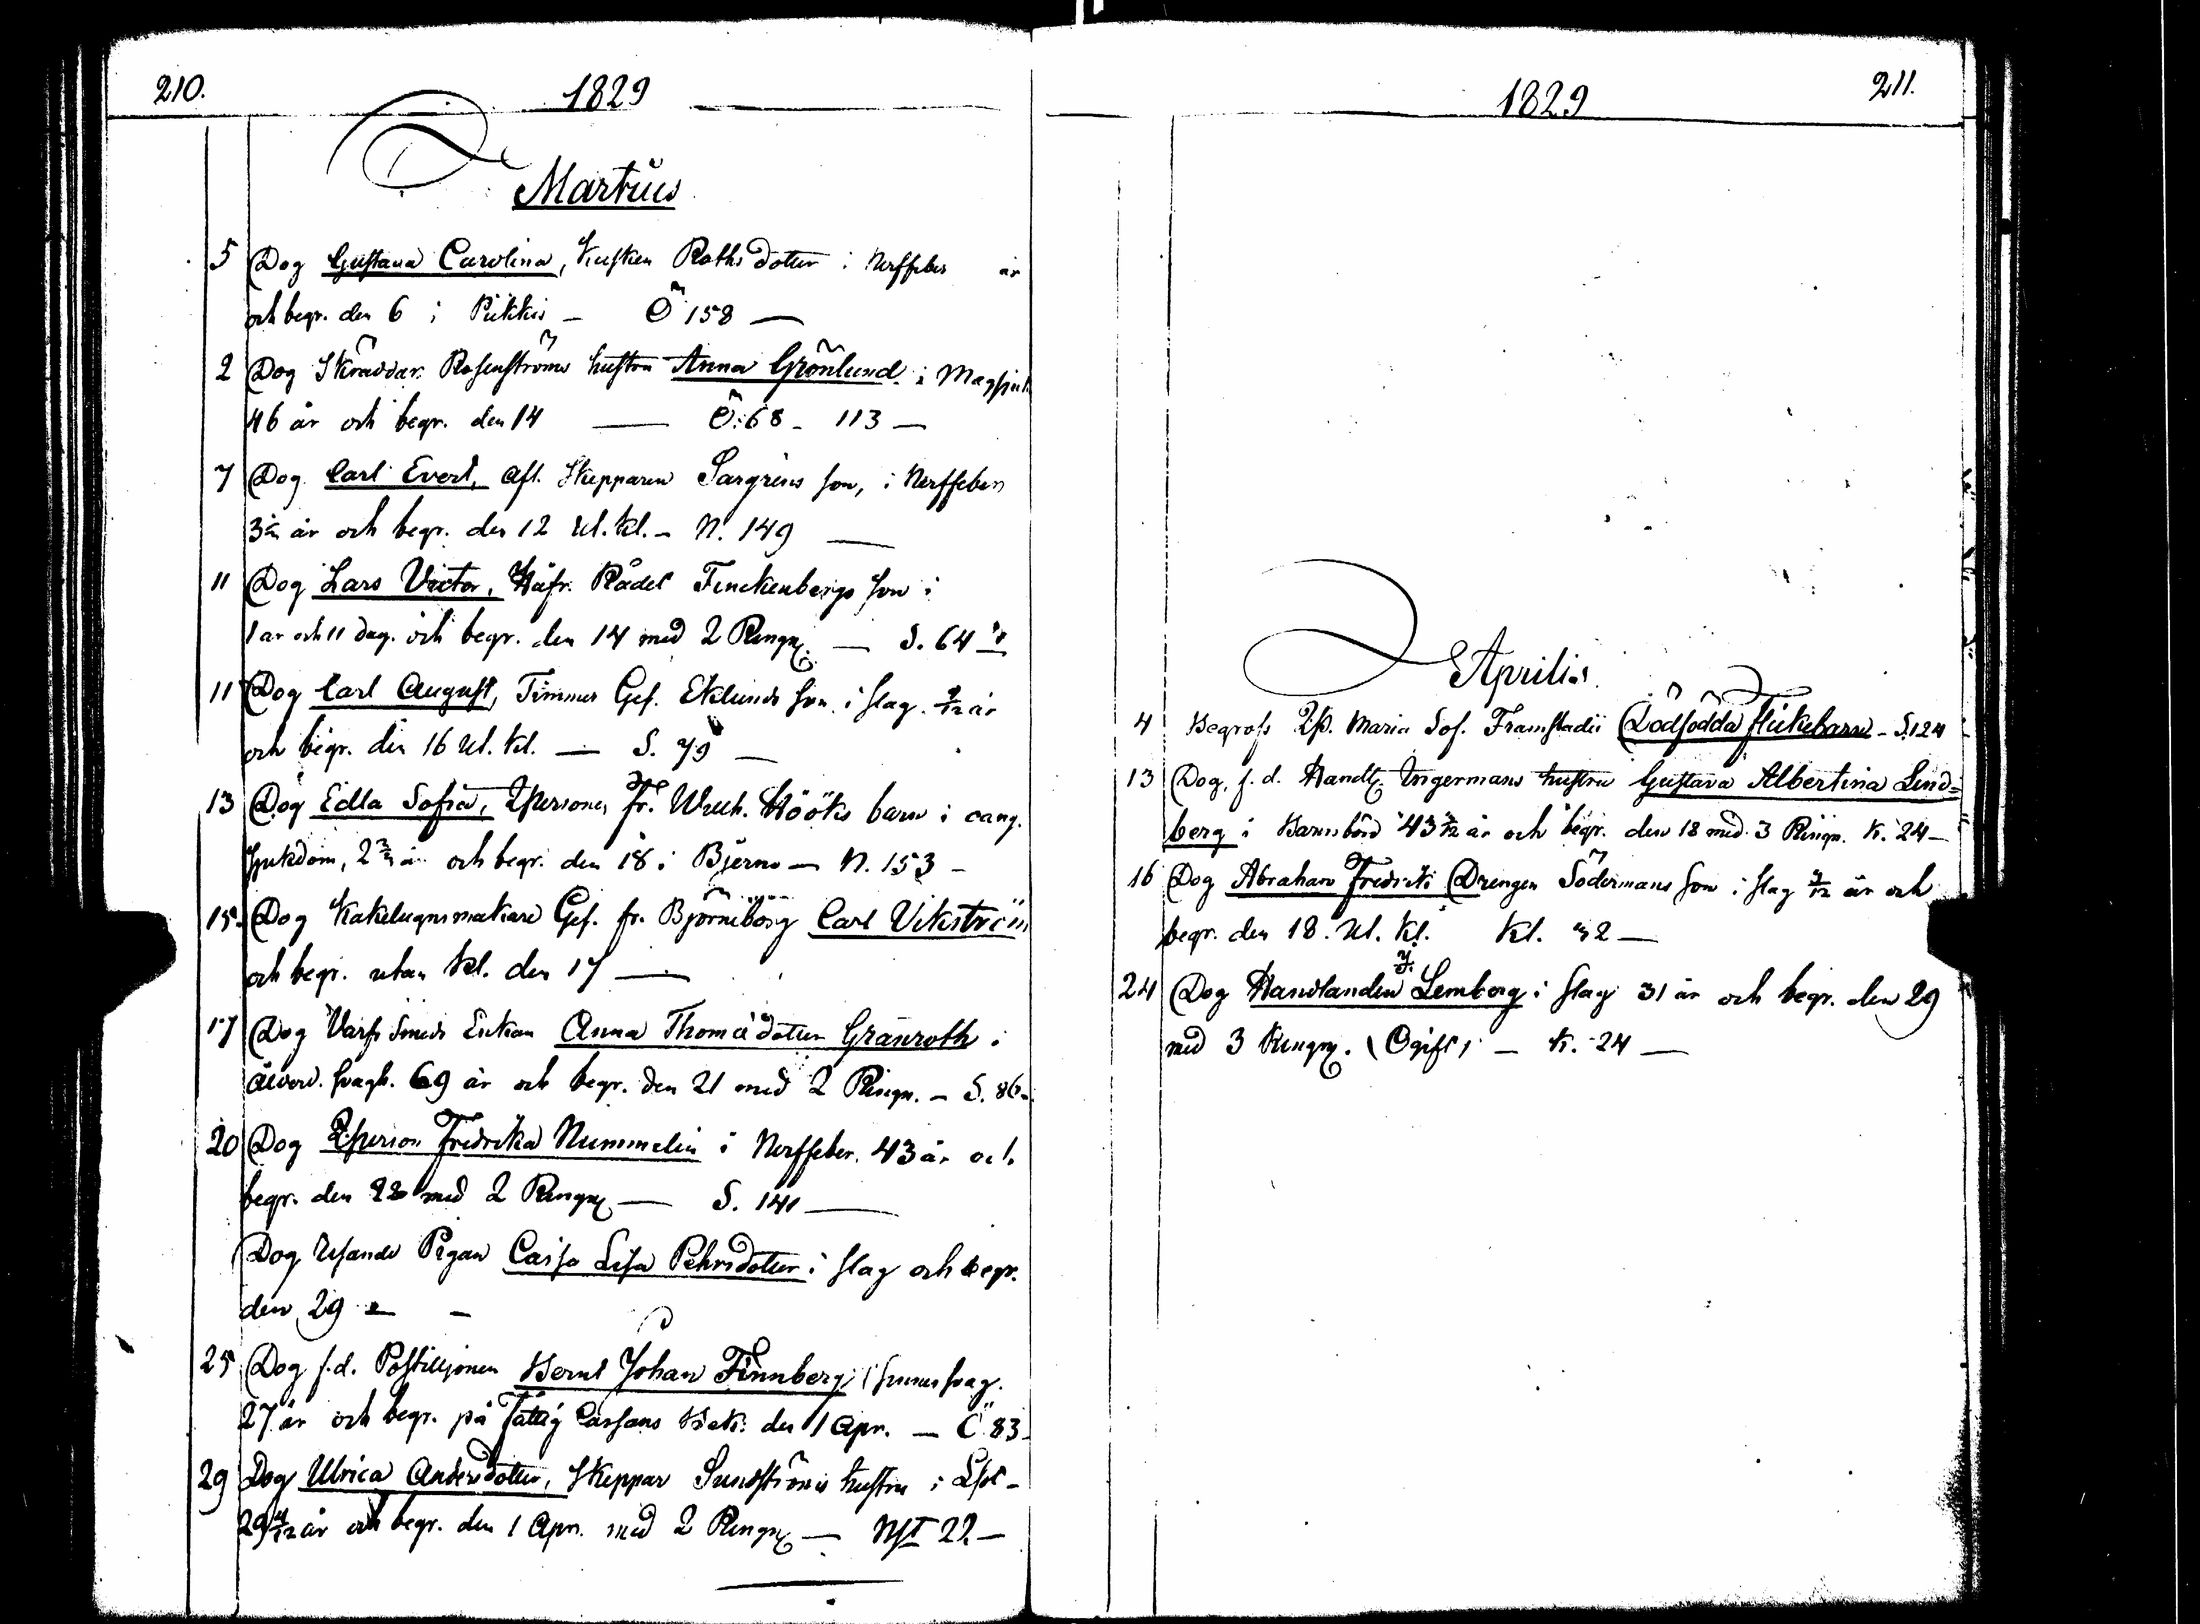 210.
1829
Martius
5 Dog Gustava Carolina, Kusken Roths dotter i Nerffeber år
och begr. den 6 i Pikkis - Ö 158 -
2 Dog Skräddar. Rosenströms hustru Anna Grönlund i
46 år och begr. den 14 - Ö: 68 - 113 -
7 Dog Carl Evert, afl. Skepparen Sargrens son, i Nerffeber
år och begr. den 12 ut. kl. - N. 149 -
11 Dog Lars Victor, Håfr. Rådet Finckenbergs son i
1 år och 11 dag. och begr. den 14 med 2 Ringn. - S. 64
11 Dog Carl August, Timmer Ges. Eklunds son i slag. år
och begr. den 16 ut. kl. - S. 79 -
13 Dog Edla Sofia, Qpersonen Fr. Ulrich. Hööks barn i cang.
sjukdom, 2 år och begr. den 18 i Bjerno - N. 153 -
15. Dog Kakelugnsmakare Ges. fr. Björneborg Carl Vikström
och begr. utan kl. den 17 -
17 Dog Varfs Smeds Enkan Anna Thomædotter Granroth i
ålderd. svagh. 69 år och begr. den 21 med 2 Ringn. - S. 86 -
20 Dog Qperson Fredrika Nummelin i Nerffeber. 43 år och
begr. den med 2 Ringn. - S. 141 -
Dog Resande Pigan Caisa Lisa Pehrsdotter i slag och begr.
den 29 - -
25 Dog f.d. Postilljonen Bernt Johan Finnberg i
27 år och begr. på den 1 Apr. - Ö 83 -
29 Dog Ulrica Andersdotter, Skeppar Sundströms hustru i
29 år och begr. den 1 Apr. med 2 Ringn. - 22. -
1829
211.
Aprilis
4 Begrofs Qp. Maria Sof. Framstadii Dödfödda flickebarn - S. 124
13 Dog, f.d. Handl. Ingermans hustru Gustava Albertina Lind=
berg i Barnsbörd 43 år och begr. den 18 med 3 Ringn. K. 24 -
16 Dog Abraham Fredrik Drengen Södermans son i slag år och
begr. den 18. ut. kl. Kl. 2 -
24 Dog Handlanden Lemberg i slag 31 år och begr. den 29
med 3 Ringn. (Ogift) - K. 24 -